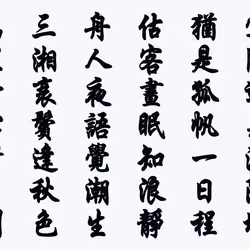 猶是孤帆一日程
估客晝眠知浪靜
舟人夜語覺潮生
三湘衰鬢逢秋色